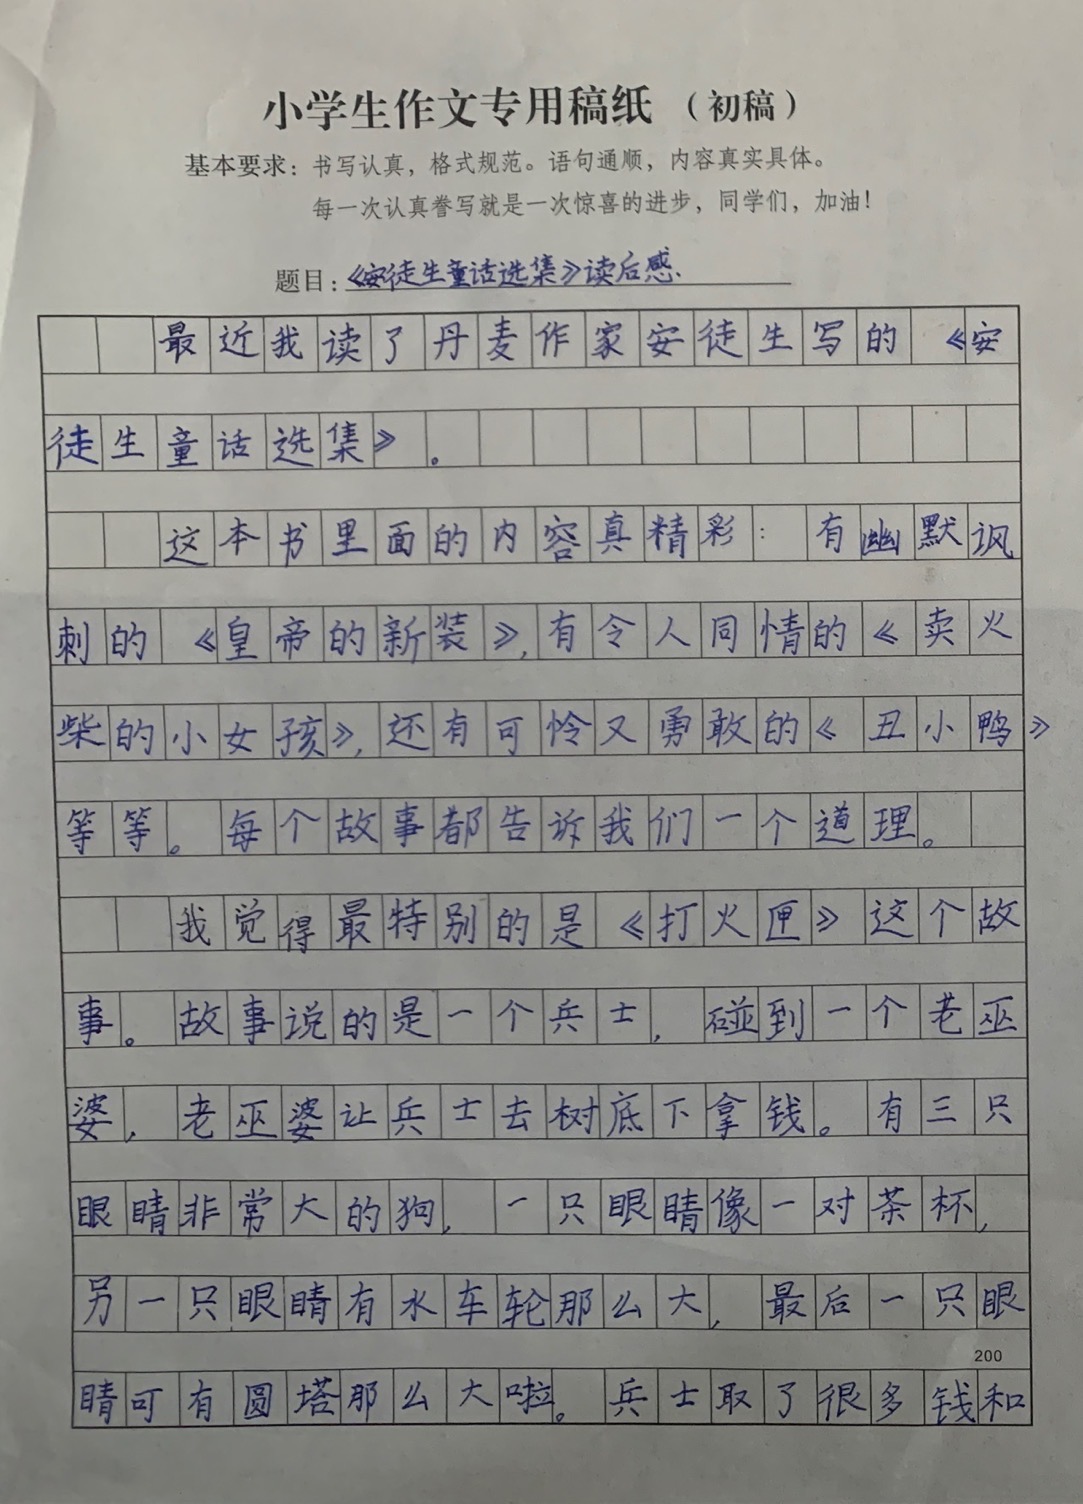 小学生作文专用稿纸（初稿）
基本要求：书写认真，格式规范。语句通顺，内容真实具体。
每一次认真誊写就是一次惊喜的进步，同学们，加油！
题目：《安徒生童话选集》读后感.
最近我读了丹麦作家安徒生写的《安
徒生童话选集》。
这本书里面的内容真精彩：有幽默讽
刺的《皇帝的新装》，有令人同情的《卖火
柴的小女孩》，还有可怜又勇敢的《丑小鸭》
等等。每个故事都告诉我们一个道理。
我觉得最特别的是《打火匣》这个故
事。故事说的是一个兵士，碰到一个老巫
婆，老巫婆让兵士去树底下拿钱。有三只
眼睛非常大的狗，一只眼睛像一对茶杯，
另一只眼睛有水车轮那么大，最后一只眼
200
睛可有圆塔那么大啦。兵士取了很多钱和